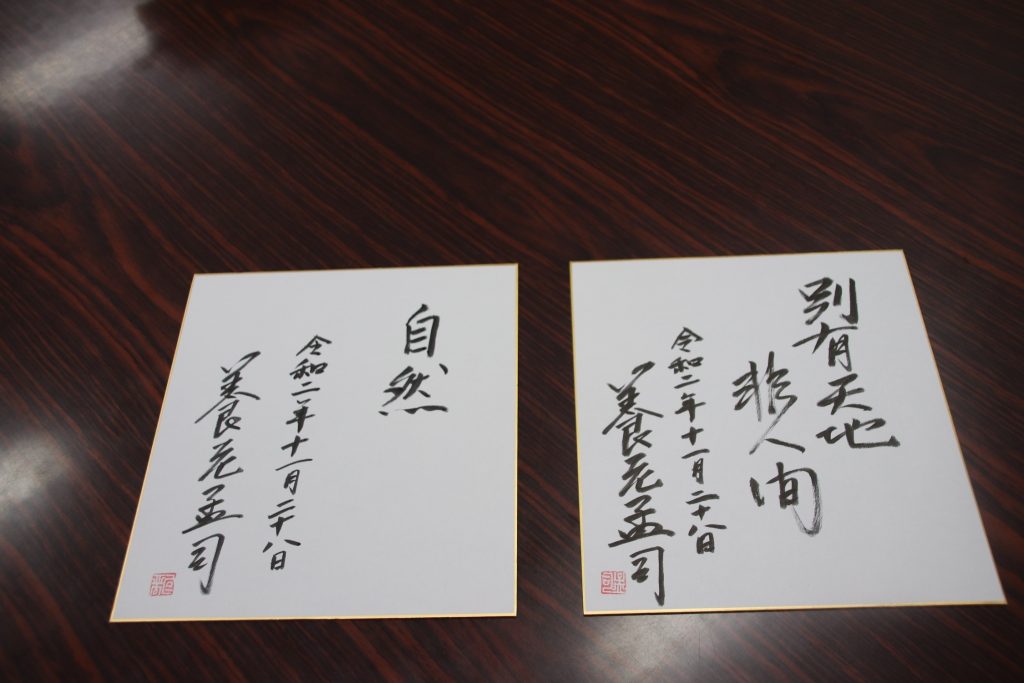 別有天地
非人間
令和二年十一月二十八日
養老孟司
自然
令和二年十一月二十八日
養老孟司